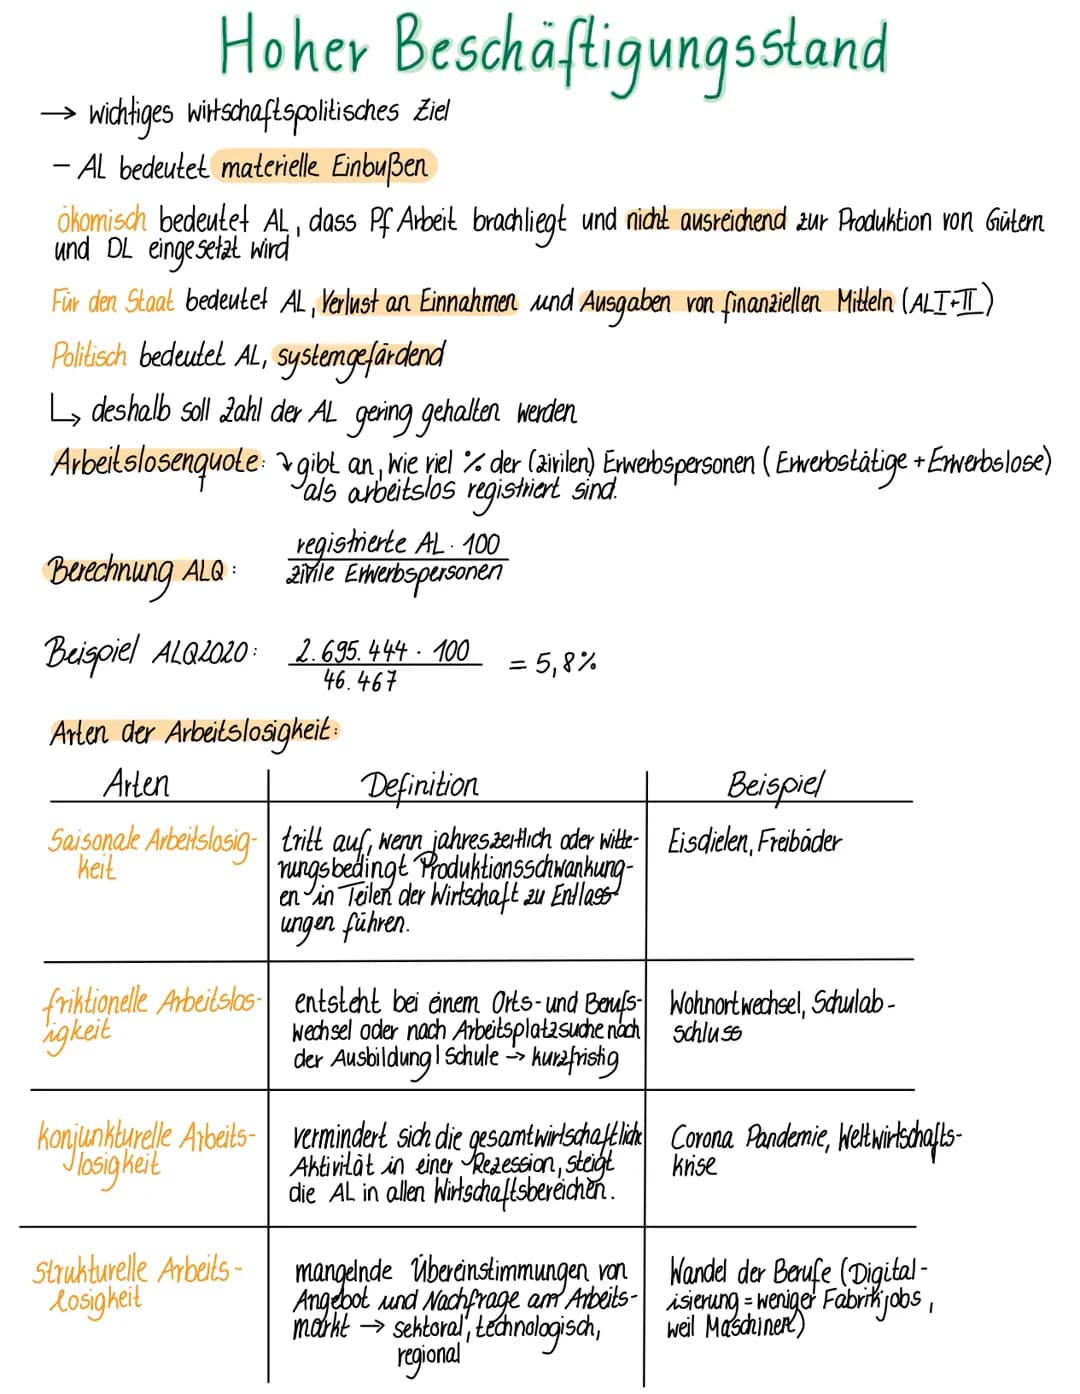 Hoher Beschäftigungsstand
→ wichtiges wirtschaftspolitisches Ziel
- AL bedeutet materielle Einbußen
ökomisch bedeutet AL, dass Pf Arbeit brachliegt und nicht ausreichend zur Produktion von Gütern
und DL eingesetzt wird
Für den Staat bedeutet AL, Verlust an Einnahmen und Ausgaben von finanziellen Mitteln (ALI+II)
Politisch bedeutet AL, systemgefärdend
↳ deshalb soll Zahl der AL gering gehalten werden
Arbeitslosenquote: ↴ gibt an, wie viel % der (zivilen) Erwerbspersonen (Erwerbstätige + Erwerbslose)
als arbeitslos registriert sind.
registrierte AL · 100
Berechnung ALQ:
zivile Erwerbspersonen
Beispiel ALQ2020: 2.695.444 · 100 = 5,8%
46.467
Arten der Arbeitslosigkeit:
Arten Definition Beispiel
Saisonale Arbeitslosig-
keit
tritt auf, wenn jahreszeitlich oder witte-
rungsbedingt Produktionsschwankung-
en in Teilen der Wirtschaft zu Entlass-
ungen führen.
Eisdielen, Freibäder
friktionelle Arbeitslos-
igkeit
entsteht bei einem Orts- und Berufs-
wechsel oder nach Arbeitsplatzsuche nach
der Ausbildung | Schule → kurzfristig
Wohnortwechsel, Schulab-
schluss
konjunkturelle Arbeits-
losigkeit
vermindert sich die gesamtwirtschaftliche
Aktivität in einer Rezession, steigt
die AL in allen Wirtschaftsbereichen.
Corona Pandemie, Weltwirtschafts-
krise
strukturelle Arbeits-
losigkeit
mangelnde Übereinstimmungen von
Angebot und Nachfrage am Arbeits-
markt → sektoral, technologisch,
regional
Wandel der Berufe (Digital-
isierung = weniger Fabrikjobs,
weil Maschinen)